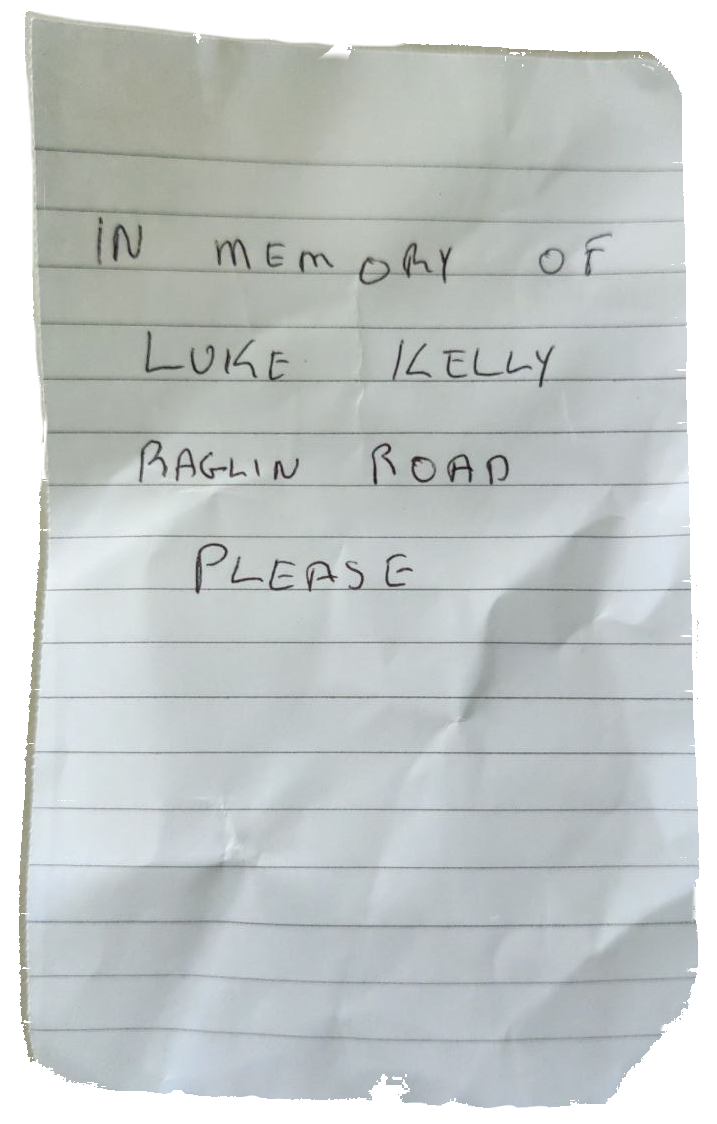 IN MEMORY OF
LUKE KELLY
RAGLIN ROAD
PLEASE